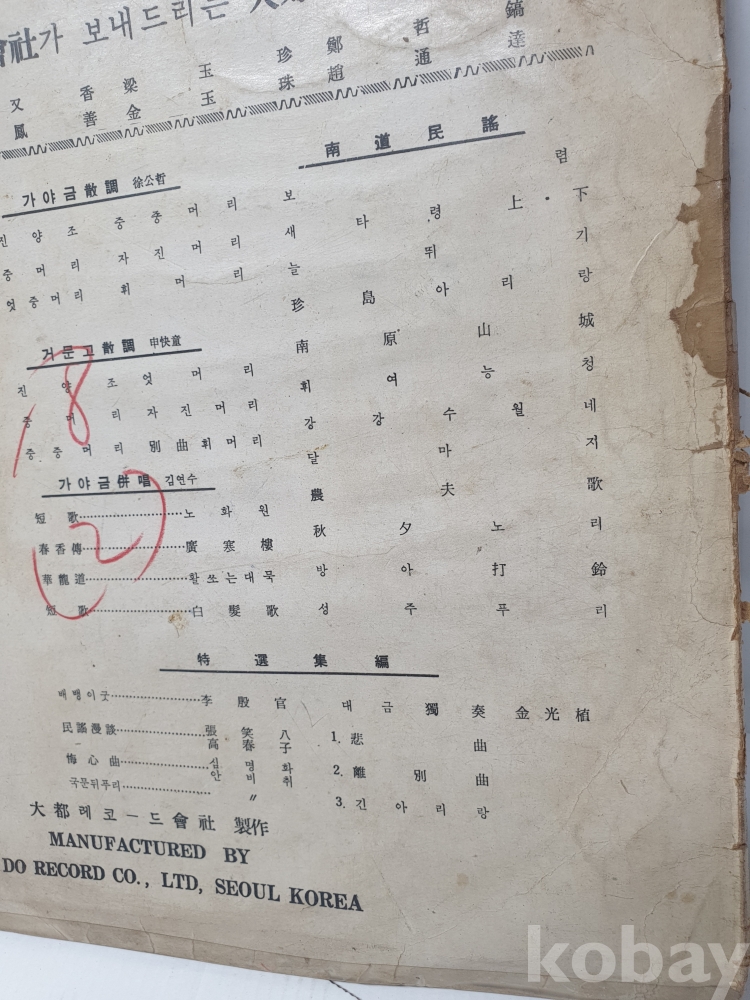 會社가 보내드리는
又 香梁 玉 珍鄭 哲 鎬
鳳 善金 玉 珠趙 通 達
가야금散調 徐公哲
진양조 중중머리
중머리 자진머리
엇중머리 휘머리
거문고散調 申快童
진양조 엇머리
중머리 자진머리
중중머리 別曲 휘머리
가야금倂唱 김연수
短歌 노화원
春香傳 廣寒樓
華龍道 활쏘는대목
短歌 白髮歌
18
2
南道民謠
보렴
새타령 上·下
늘뛰기
珍島아리랑
南原山城
휘여능청
강강수월네
달마저
農夫歌
秋夕노리
방아打鈴
성주푸리
特選集編
배뱅이굿 李殷官
民謠漫談 張笑八
高春子
悔心曲 심명화
안비취
국문뒤푸리 〃
대금獨奏 金光植
1. 悲曲
2. 離別曲
3. 긴아리랑
大都레코ー드會社 製作
MANUFACTURED BY
DO RECORD CO., LTD, SEOUL KOREA
kobay